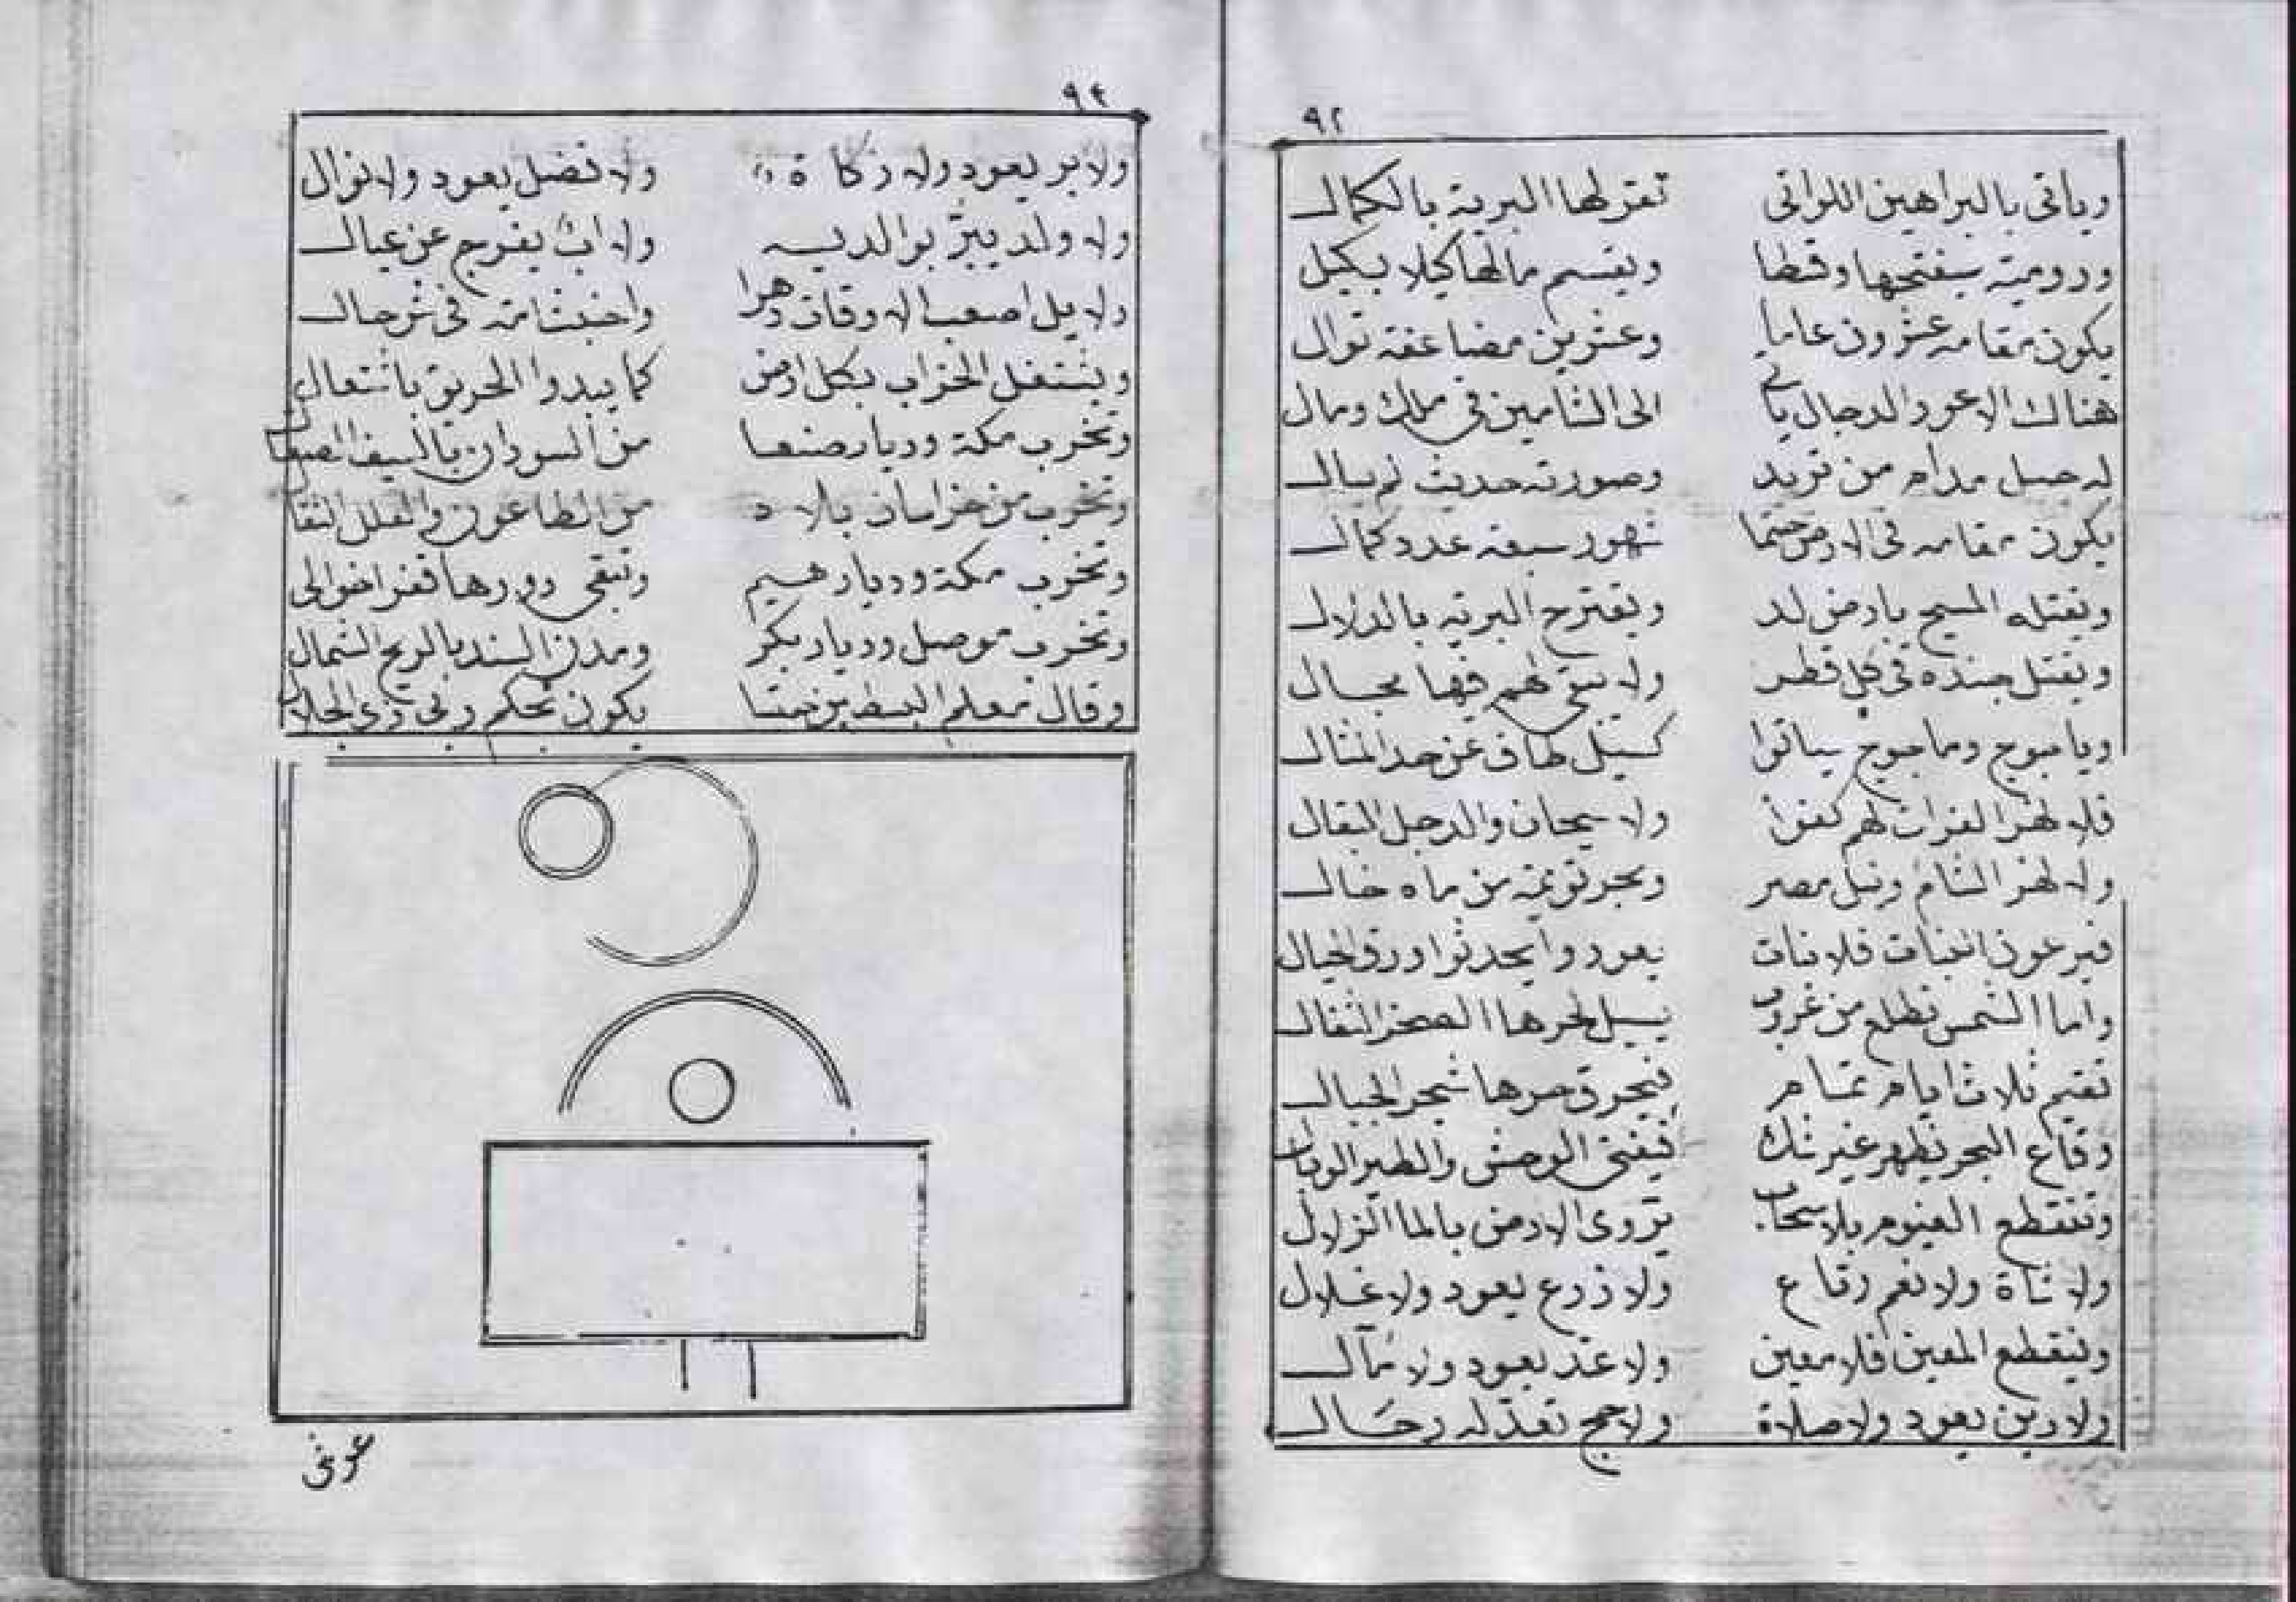 ٩٢
وياتى بالبراهين اللواتى تقر لها البرية بالكمال
ورومية سيفتحها وقسطا ويقسم مالها كيلا بكيل
يكون مقامه عشرون عاما وعشرين مضاعفة توال
هناك الاعور الدجال ياتى الى الشامين فى ملك ومال
له جبل مدام من ثريد وصورته حديث
يكون مقامه فى الارض حتما شهور سبعة عدد كمال
ويقتله المسيح بارض لد ويقترح البرية بالدلال
ويقتل جنده فى كل قطر ولا يبقى لهم فيها مجال
وياجوج وماجوج سياتوا كسيل طاف عن حد المثال
فلا نهر الفرات لهم ولا سيحان والدجل الثقال
ولا نهر الشام ونيل مصر وبحر من ماه خال
فيرعون النبات فلا نبات يعود وا ورق
واما الشمس تطلع من غروب يسيل لحرها الصخر الثقال
تقيم ثلاث ايام تمام فيحرق حرها شجر الجبال
وقاع البحر يظهر غير شك فيفنى الوحش والطير
وتنقطع الغيوم بلا سحاب تروى الارض بالما الزلال
ولا شاة ولا نعم ولا زرع يعود ولا غلال
وينقطع المعين فلا معين ولا يعود ولا
ولا دين يعود ولا صلاة ولا حج تعد له رحال
٩٣
ولا بر يعود ولا زكاة ولا فضل يعود ولا نوال
ولا ولد يبر بوالديه ولا اب يفرج عن عيال
اصعب الاوقات دهرا فى شر حال
ويشتعل الخراب بكل ارض كما يبدوا الحريق باشتعال
وتخرب مكة وديار صنعا من السودان بالسيف الصقال
وتخرب من خراسان بلاد من الطاعون والعلل الثقال
وتخرب مكة وديار وتبقى دورها قفرا خوالى
وتخرب موصل وديار بكر ومدن السند بالريح الشمال
وقال معلم يكون بحكم ربى ذى الجلال